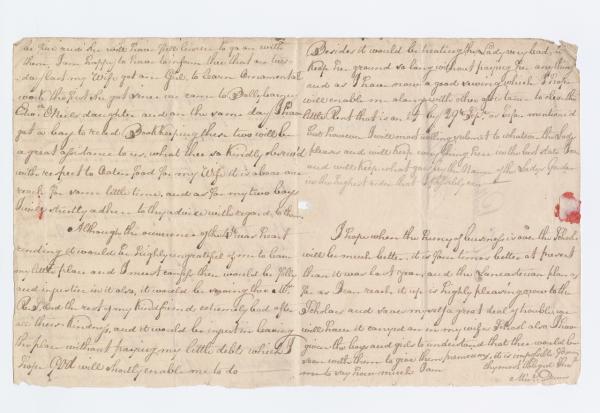 be true and he will have permission to go on with
them, I am happy to have to inform thee that on tues-
day last my Wife got one Girl to learn Ornamental
work the first she got since we came to Ballybarney
Edwd ONeils daughter and on the same day I have
got a boy to read Bookkeeping these two will be
a great assistance to us, what thee so kindly desir'd
with respect to Oaten food for my Wife it is above our
reach for some little time, and as for my two boys
I will strictly adhere to thy advice with regard to them
Although the occurrence of the was heart
rending it would be highly ungrateful of me to leave
my little place and I must confess there would be folly
and injustice in it also, it would be using the Mr.
R. S. and the rest of my kind friends extremely bad after
all their kindness, and it would be unjust in leaving
the place without paying my little debts which I
hope God will shortly enable me to do
Besides it would be treating the Lady very bad, to
keep her ground so long without paying her any thing
and as I have now a good which I hope
will enable me along with other assistance to clear the
little Rent that is on it by 29th Sepr. as before mentioned
but however I will most willingly submit to whatever the Lady
pleases and will keep every thing here in the best state I can
and will keep what goes by the Name of the Ladys Garden
in the highest order that I possibly can
I hope when the hurry of business is over the School
will be much better, it is four times better at present
than it was last year, and the Lancasterian plan as
far as I can reach it up is highly pleasing now to the
Scholars and saves myself a great deal of trouble, we
will have it carryed on in my wifes School also, I have
given the boys and girls to understand that thee would be
soon with them to give them premiums, it is impossible for
me to say how much I am thy most Obliged Sert